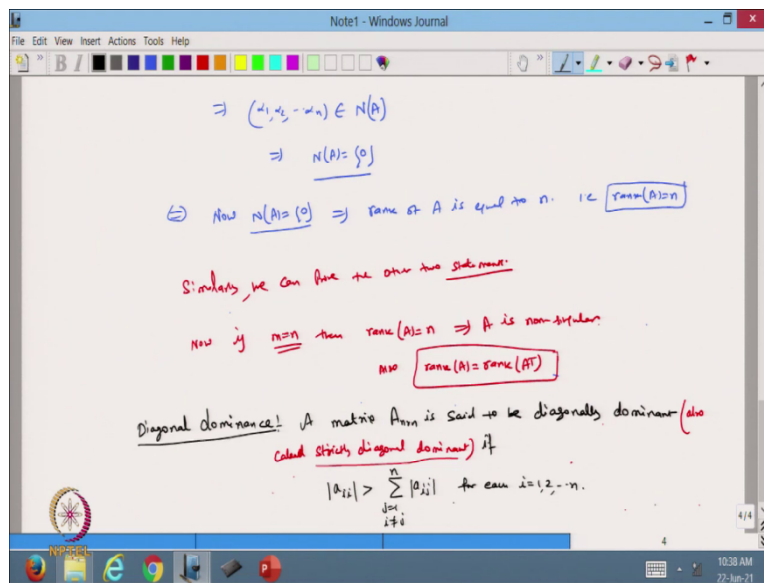 Note1 - Windows Journal
File Edit View Insert Actions Tools Help
B I
⇒ (α1, α2, --- αn) ∈ N(A)
⇒ N(A) = {0}
Now N(A) = {0} ⇒ rank of A is equal to n. i.e rank(A)=n
Similarly, we can prove the other two statement.
Now if m=n then rank(A)=n ⇒ A is non-singular.
Also rank(A) = rank(AT)
Diagonal dominance! A matrix Anxn is said to be diagonally dominant (also
called strictly diagonal dominant) if
|aii| > n∑j=1 i≠j |aij| for each i=1,2,--n.
4/4
4
NPTEL
10:38 AM
22-Jun-21